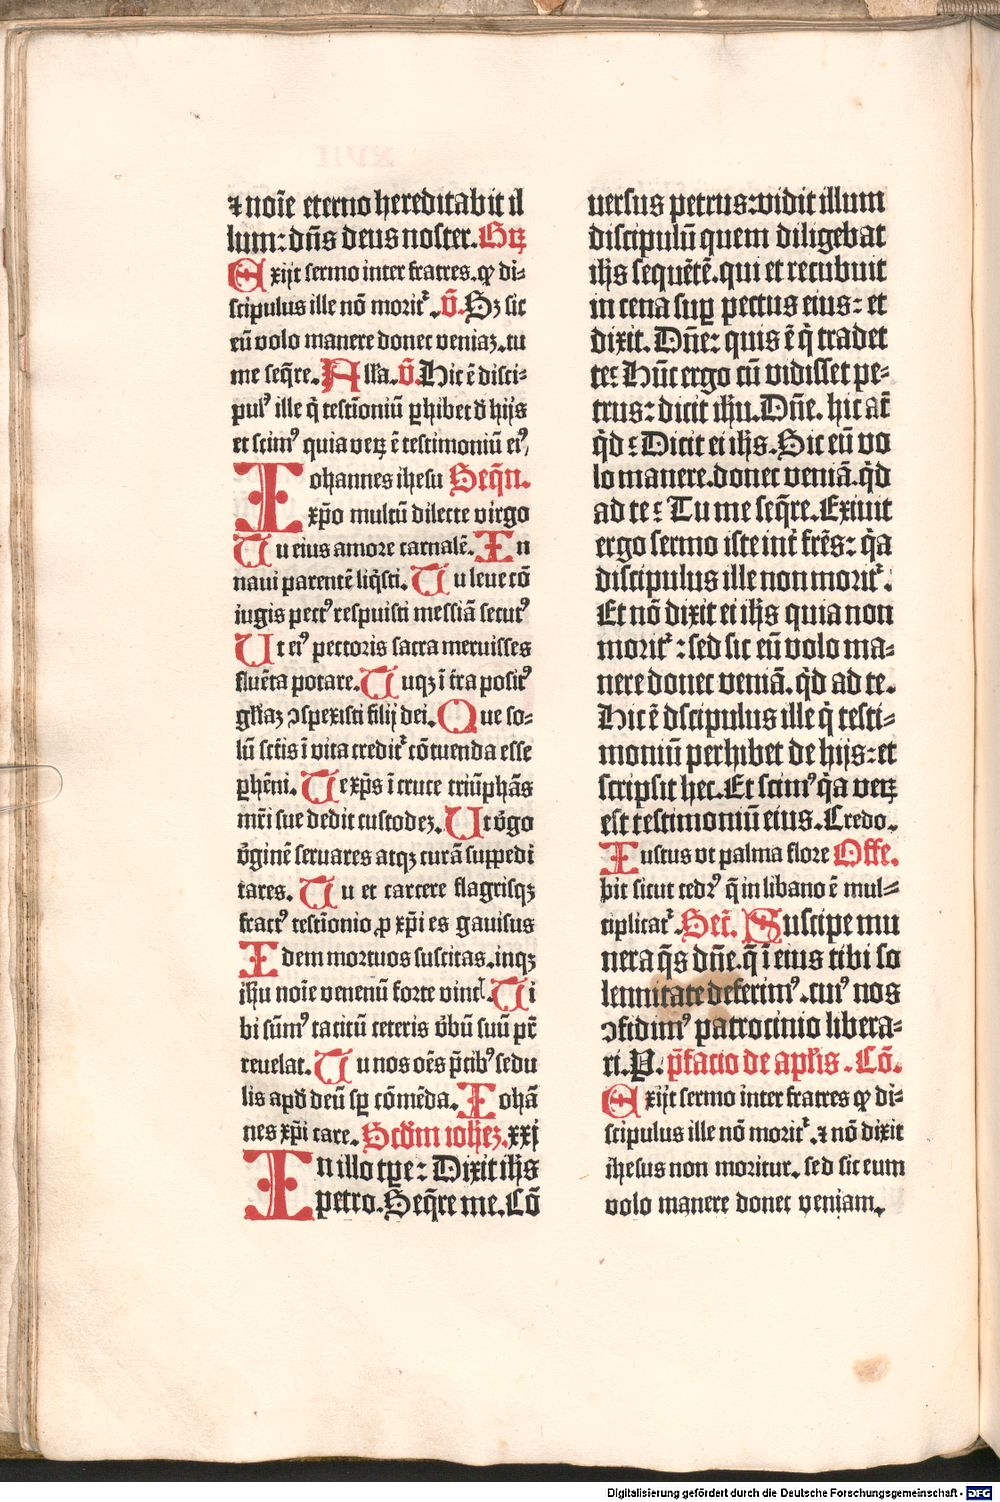 ⁊ noīe eterno hereditabit il
lum: dn̄s deus noster. Grꝫ
Exijt sermo inter fratres. ꝙ di⸗
scipulus ille nō moritᷣ. V̄. Sꝫ sic
eū volo manere donec veniaꝫ. tu
me seq̄re. Alla. V̄. Hic ē disci⸗
pulꝰ ille q̄ testīoniū ꝑhibet đ hijs
et scimꝰ quia veꝝ ē testimoniū eiꝰ
Iohannes ihesu Seqn̄.
xp̄o multū dilecte virgo
Tu eius amore carnalē. In
naui parentē liq̄sti. Tu leue cō
iugis pectꝰ respuisti messiā secutꝰ
Ut eiꝰ pectoris sacra meruisses
fluēta potare. Tuqꝫ ī tr̄a positꝰ
gl̄iaꝫ ɔspexisti filij dei. Que so⸗
lū sctīs ī vita creditᷣ cōtuenda esse
phēni. Te xp̄s ī cruce triūphās
mr̄i sue dedit custodeꝫ. Ut v̓go
v̓ginē seruares atqꝫ curā suppedi
tares. Tu et carcere flagrisqꝫ
fractꝰ testīonio ꝓ xp̄i es gauisus
Idem mortuos suscitas. inqꝫ
ih̄u noīe venenū forte vincꝭ. Ti
bi sūmꝰ tacitū ceteris v̓bū suū pr̄
reuelat. Tu nos oēs p̄cibꝰ sedu
lis apđ deū sꝑ cōmēda. Iohā
nes xp̄i care. Scđm iohēꝫ. xxj
In illo tꝑe: Dixit ih̄s
petro. Seq̄re me. Cō
uersus petrus: vidit illum
discipulū quem diligebat
ih̄s sequētē. qui et recubuit
in cena suꝑ pectus eius: et
dixit. Dn̄e: quis ē q̄ tradet
te: Hūc ergo cū vidisset pe⸗
trus: dicit ih̄u. Dn̄e. hic at̄
q̄d: Dicit ei ih̄s. Sic eū vo
lo manere. donec veniā. q̄d
ad te: Tu me seq̄re. Exiuit
ergo sermo iste int̄ fr̄es: q̄a
discipulus ille non moritᷣ.
Et nō dixit ei ih̄s quia non
moritᷣ: sed sic eū volo ma⸗
nere donec veniā. q̄d ad te.
Hic ē dscipulus ille q̄ testi⸗
moniū perhibet de hijs: et
scripsit hec. Et scimꝰ q̄a veꝝ
est testimoniū eius. Credo.
Iustus vt palma flore Offe.
bit sicut cedrꝰ q̄ in libano ē mul⸗
tiplicatᷣ. Secr̄. Suscipe mu
nera q̄s dn̄e. q̄ ī eius tibi so
lennitate deferimꝰ. cuiꝰ nos
ɔfidimꝰ patrocinio libera⸗
ri. P. p̄facio de apl̄is. Cō.
Exijt sermo inter fratres ꝙ di⸗
scipulus ille nō moritᷣ. ⁊ nō dixit
ihesus non moritur. sed sic eum
volo manere donec veniam.
Digitalisierung gefördert durch die Deutsche Forschungsgemeinschaft - DFG